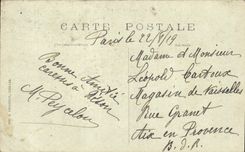 CARTE POSTALE
Paris le 22/8/19
Madame et Monsieur
Léopold
Magasin de Vaisselles
Rue Granet
Aix en Provence
B. D. R.
Bonne Amitié
caresses à
M. Peycelon